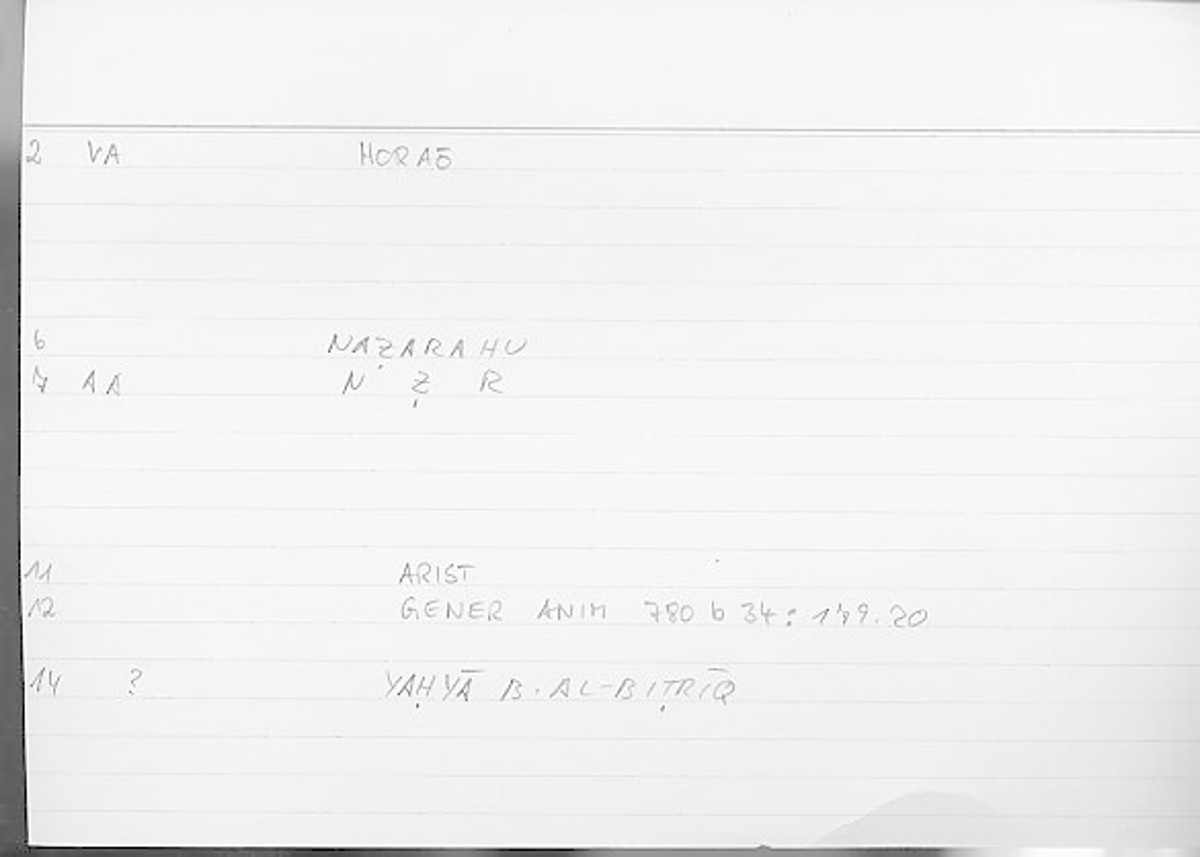 2 VA HORAŌ
6 NAẒARAHU
7 AA N Ẓ R
11 ARIST
12 GENER ANIM 780 b 34: 179.20
14 ? YAḤYĀ B. AL-BIṬRĪQ